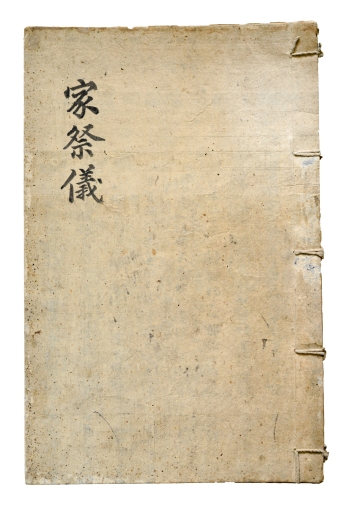 家祭儀